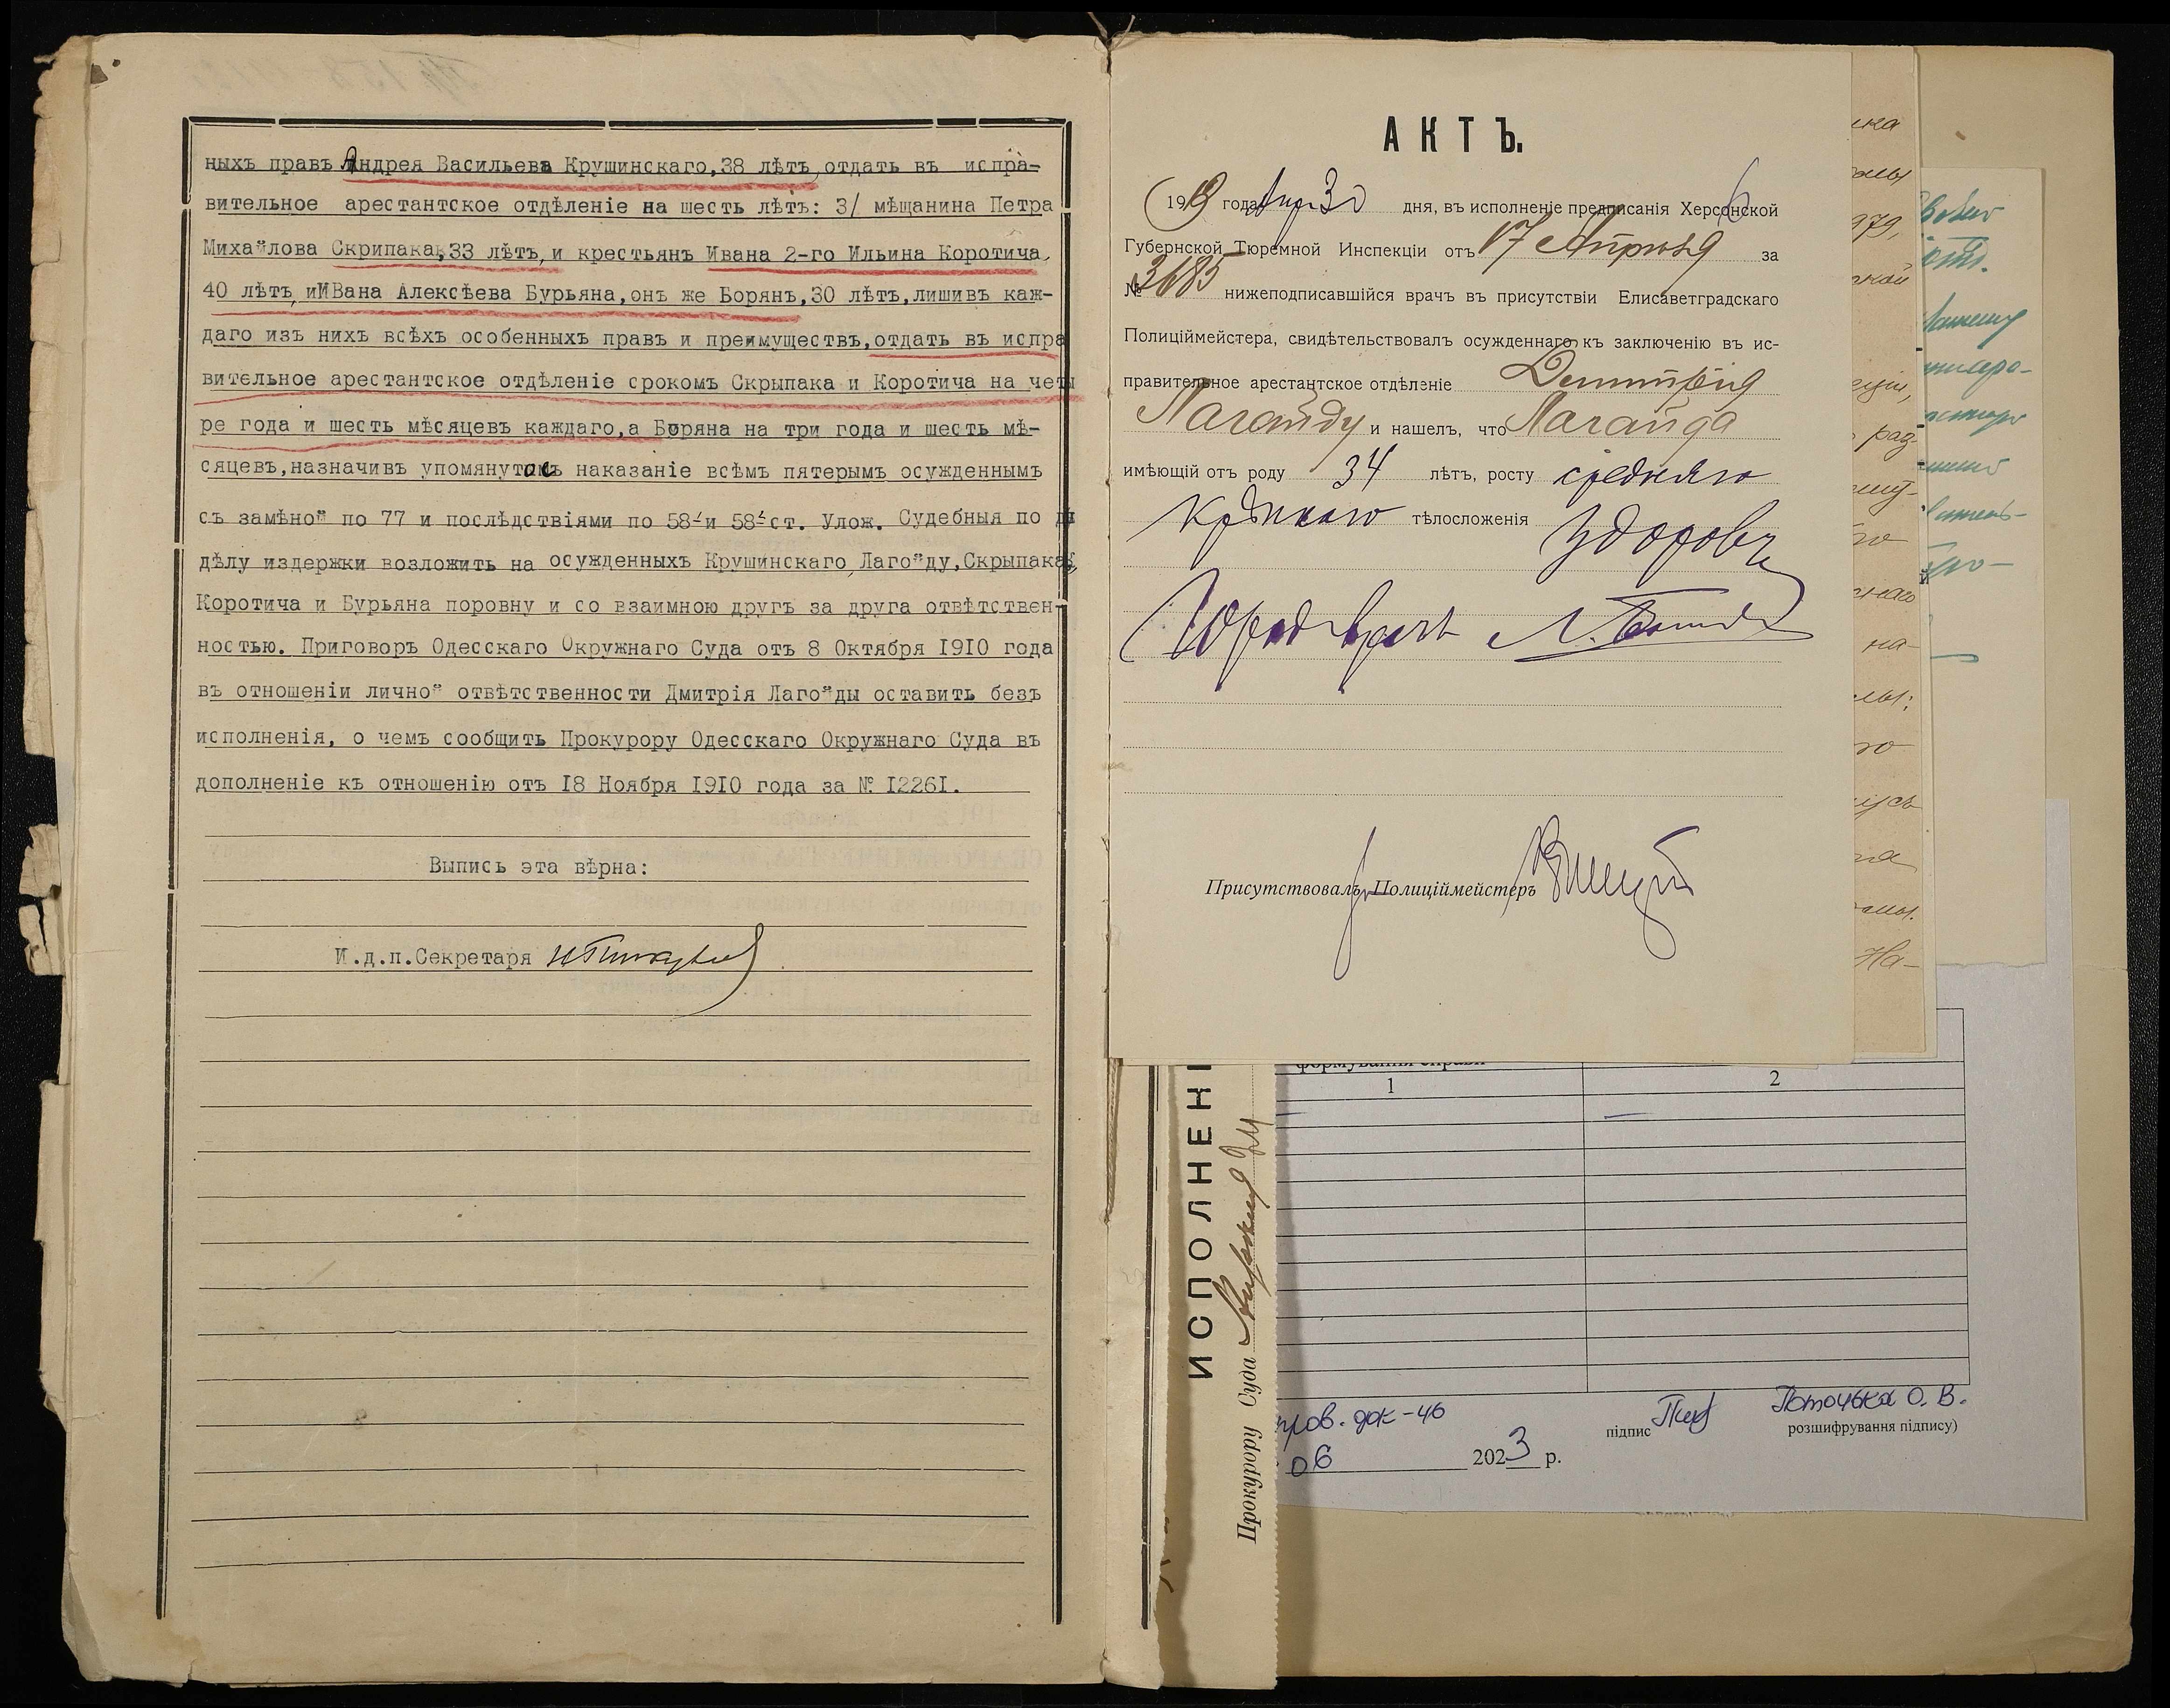 ныхъ правъ Андрея Васильева Крушинскаго,38 лѣтъ,отдать въ испра-
вительное арестантское отдѣленіе на шесть лѣтъ: 3/ мѣщанина Петра
Михайлова Скрипака,33 лѣтъ,и крестьянъ Ивана 2-го Ильина Коротича,
40 лѣтъ,иИВана Алексѣева Бурьяна,онъ же Борянъ,30 лѣтъ,лишивъ каж-
даго изъ нихъ всѣхъ особенныхъ правъ и преимуществъ,отдать въ испра
вительное арестантское отдѣленіе срокомъ Скрыпака и Коротича на четы
ре года и шесть мѣсяцевъ каждаго,а Боряна на три года и шесть мѣ-
сяцевъ,назначивъ упомянутое наказаніе всѣмъ пятерымъ осужденнымъ
съ замѣной по 77 и послѣдствіями по 58 и 58 ст. Улож. Судебныя по
дѣлу издержки возложить на осужденныхъ Крушинскаго,Лагойду,Скрыпака,
Коротича и Бурьяна поровну и со взаимною другъ за друга отвѣтствен-
ностью. Приговоръ Одесскаго Окружнаго Суда отъ 8 Октября I9I0 года
въ отношеніи личной отвѣтственности Дмитрія Лагойды оставить безъ
исполненія, о чемъ сообщить Прокурору Одесскаго Окружнаго Суда въ
дополненіе къ отношенію отъ I8 Ноября I9I0 года за № I226I.
Выпись эта вѣрна:
И.д.п.Секретаря
АКТЪ.
19 года Апр 30 дня, въ исполненіе предписанія Херсонской
Губернской Тюремной Инспекціи отъ 17 Апрѣля за
№ 3685 нижеподписавшійся врачъ въ присутствіи Елисаветградскаго
Полиціймейстера, свидѣтельствовалъ осужденнаго къ заключенію въ ис-
правительное арестантское отдѣленіе Дмитрія
Лагойду и нашелъ, что Лагойда
имѣющій отъ роду 34 лѣтъ, росту средняго
крѣпкаго тѣлосложенія здоровъ
Город врачъ
Присутствовалъ Полиціймейстеръ
ИСПОЛНЕН
Прокурору Суда
формування справи
1 2
пров. док-46
06 2023 р.
підпис
Поточька О. В.
розшифрування підпису)